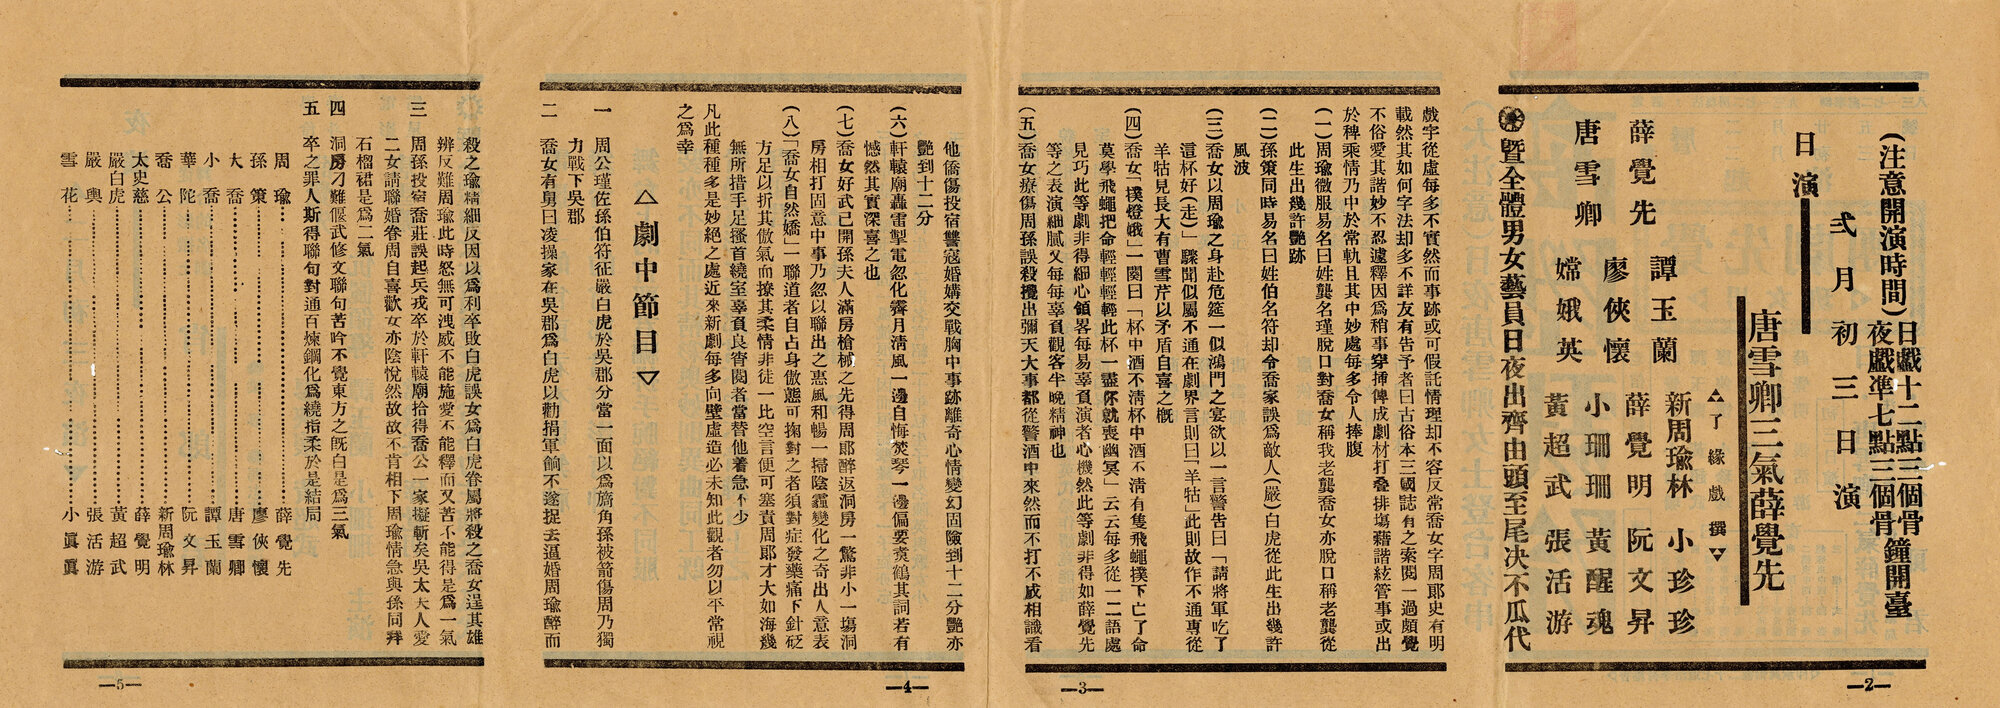 (注意開演時間)日戲十二點三個骨鐘開臺
夜戲準七點三個骨
弍月初三日演
日演
唐雪卿三氣薛覺先
△了緣戲撰▽
薛覺先 譚玉蘭 新周瑜林 小珍珍
廖俠懷 薛覺明 阮文昇
唐雪卿 嫦娥英 小珊珊 黃醒魂
黃超武 張活游
暨全體男女藝員日夜出齊由頭至尾决不瓜代
—2—
戲字從虛每多不實然而事跡或可假託情理却不容反常喬女字周郎史有明
載然其如何字法却多不詳友有告予者曰古俗本三國誌有之案閱一過頗覺
不俗愛其諧妙不忍遽釋因爲稍事穿揷俾成劇材打叠排塲藉諧絃管事或出
於稗乘情乃中於常軌且其中妙處每多令人捧腹
(一)周瑜微服易名曰姓龔名瑾脫口對喬女稱我老龔喬女亦脫口稱老龔從
此生出幾許艷跡
(二)孫策同時易名曰姓伯名符却令喬家誤爲敵人(嚴)白虎從此生出幾許
風波
(三)喬女以周瑜之身赴危筵一似鴻門之宴欲以一言警告曰「請將軍吃了
這杯好(走)」驟聞似屬不通在劇界言則曰「羊牯」此則故作不通專從
羊牯見長大有曹雪芹以矛盾自喜之慨
(四)喬女「撲燈娥」一闋曰「杯中酒不淸杯中酒不淸有隻飛蠅撲下亡了命
莫學飛蠅把命輕輕輕輕此杯一盡怀就喪幽冥」云云每多從一二語處
見巧此等劇非得細心領畧每易辜頁演者心機然此等劇非得如薛覺先
等之表演細膩又每每辜頁觀客半晚精神也
(五)喬女療傷周孫誤殺攪出彌天大事都從警酒中來然而不打不成相識看
—3—
他僑傷投宿讐寇婚媾交戰胸中事跡離奇心情變幻固險到十二分艷亦
艷到十二分
(六)軒轅廟轟雷掣電忽化霽月淸風一邊自悔焚琴一邊偏要煑鶴其詞若有
憾然其實深喜之也
(七)喬女好武已開孫夫人滿房槍械之先得周郎醉返洞房一驚非小一塲洞
房相打固意中事乃忽以聯出之惠風和暢一掃陰霾變化之奇出人意表
(八)「喬女自然嬌」一聯道者自占身傲態可掬對之者須對症發藥痛下針砭
方足以折其傲氣而撩其柔情非徒一比空言便可塞責周郎才大如海幾
無所措手足搔首繞室辜頁良宵閱者當替他着急不少
凡此種種多是妙絕之處近來新劇每多向壁虛造必未知此觀者勿以平常視
之爲幸
△劇中節目▽
一 周公瑾佐孫伯符征嚴白虎於吳郡分當一面以爲旖角孫被箭傷周乃獨
力戰下吳郡
二 喬女有舅曰凌操家在吳郡爲白虎以勸捐軍餉不遂捉去逼婚周瑜醉而
—4—
殺之瑜精細反因以爲利卒敗白虎誤女爲白虎眷屬將殺之喬女逞其雄
辨反難周瑜此時怒無可洩威不能施愛不能釋而又苦不能得是爲一氣
三 周孫投宿喬莊誤起兵戎卒於軒轅廟拾得喬公一家擬斬矣吳太夫人愛
二女請聯婚眷周自喜歡女亦陰悅然故故不肯相下周瑜情急與孫同拜
石榴裙是爲二氣
四 洞房刁難偃武修文聯句苦吟不覺東方之既白是爲三氣
五 卒之罪人斯得聯句對通百煉鋼化爲繞指柔於是結局
周瑜……薛覺先
孫策……廖俠懷
大喬……唐雪卿
小喬……譚玉蘭
華陀……阮文昇
喬公……新周瑜林
太史慈……薛覺明
嚴白虎……黃超武
嚴輿……張活游
雪花……小眞眞
—5—